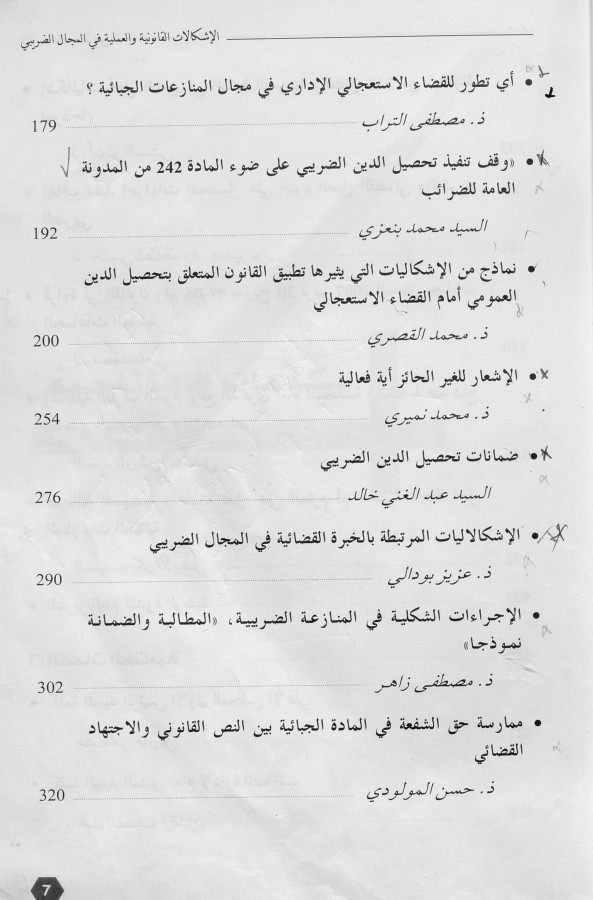 الإشكالات القانونية والعملية في المجال الضريبي
• أي تطور للقضاء الاستعجالي الإداري في مجال المنازعات الجبائية ؟
ذ. مصطفى التراب 179
• «وقف تنفيذ تحصيل الدين الضريبي على ضوء المادة 242 من المدونة
العامة للضرائب
السيد محمد بنعزي 192
• نماذج من الإشكاليات التي يثيرها تطبيق القانون المتعلق بتحصيل الدين
العمومي أمام القضاء الاستعجالي
ذ. محمد القصري 200
• الإشعار للغير الحائز أية فعالية
ذ. محمد نميري 254
• ضمانات تحصيل الدين الضريبي
السيد عبد الغني خالد 276
• الإشكالاليات المرتبطة بالخبرة القضائية في المجال الضريبي
ذ. عزيز بودالي 290
• الإجراءات الشكلية في المنازعة الضريبية، «المطالبة والضمانة
نموذجا»
ذ. مصطفى زاهر 302
• ممارسة حق الشفعة في المادة الجبائية بين النص القانوني والاجتهاد
القضائي
ذ. حسن المولودي 320
7